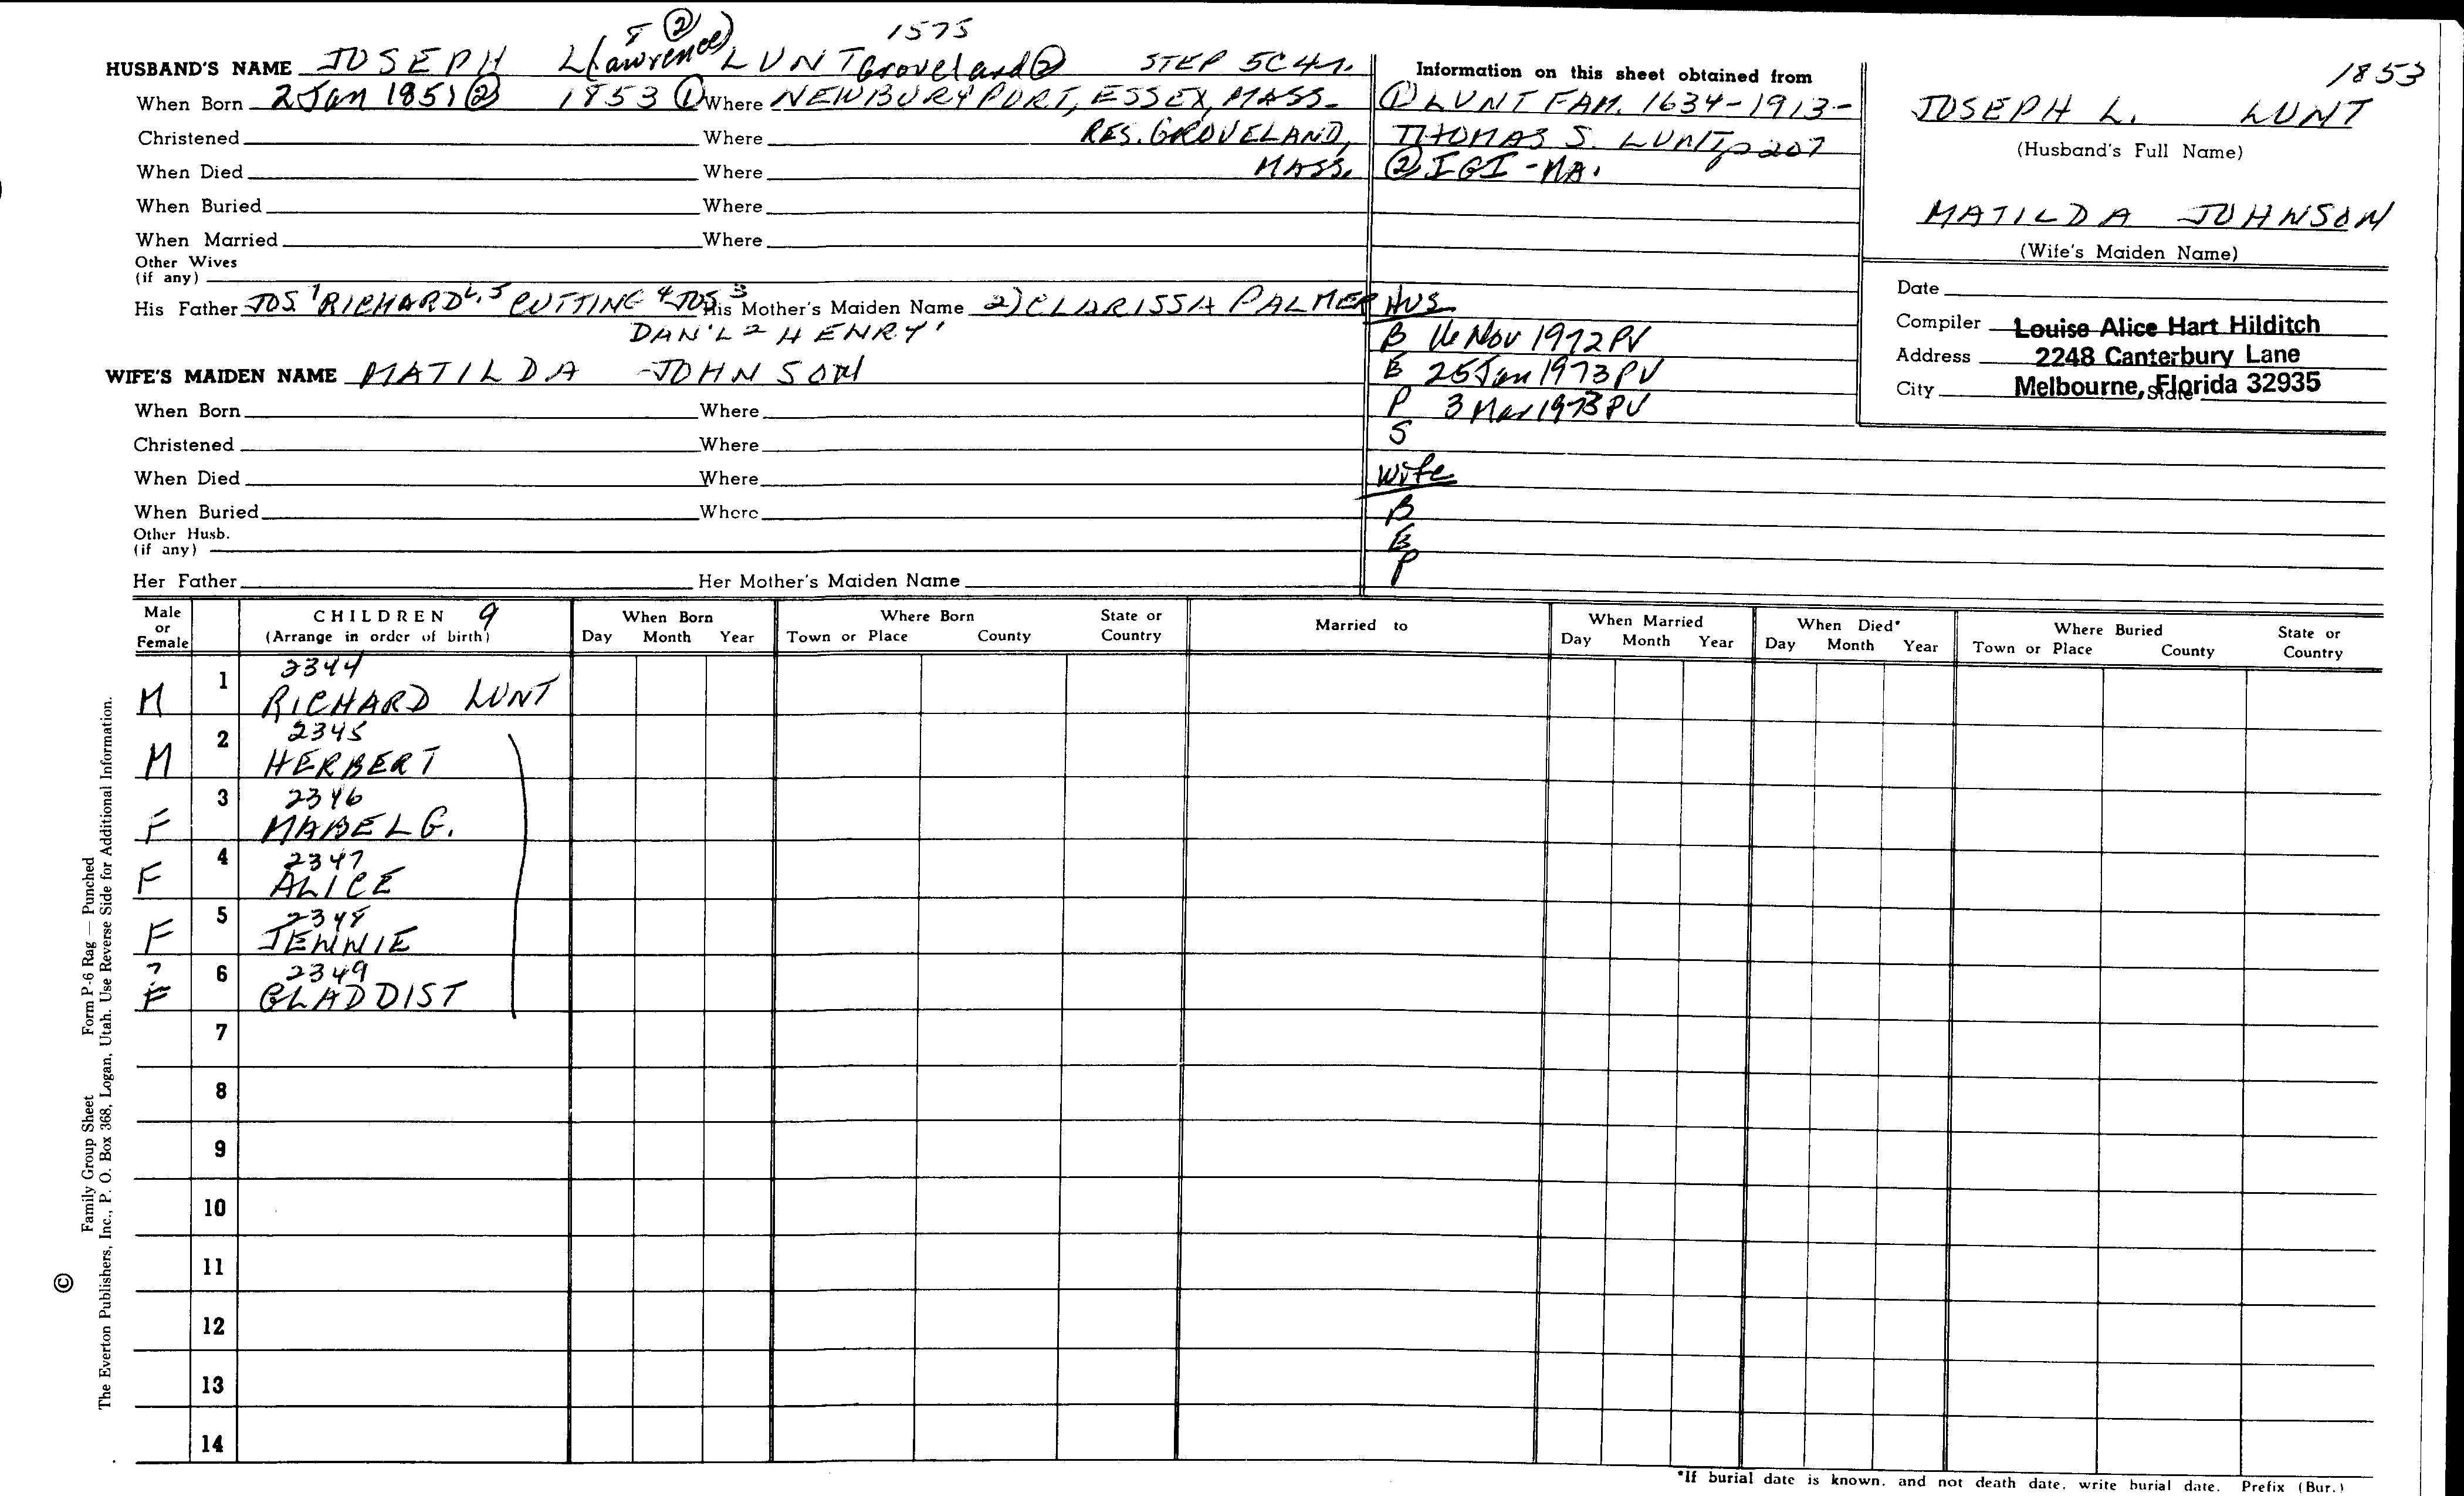 8 ② 1575
HUSBAND'S NAME JOSEPH L(awrence) LUNT Groveland② STEP SC 41.
When Born 2 Jan 1851② 1853 ① Where NEWBURYPORT, ESSEX, MASS.
Christened Where RES. GROVELAND,
When Died Where MASS.
When Buried Where
When Married Where
Other Wives
(if any)
His Father JOS.⁷ RICHARD⁶,⁵ CUTTING⁴ JOS.³ His Mother's Maiden Name 2) CLARISSA PALMER
DAN'L² HENRY¹
WIFE'S MAIDEN NAME MATILDA JOHNSON
When Born Where
Christened Where
When Died Where
When Buried Where
Other Husb.
(if any)
Her Father Her Mother's Maiden Name
Information on this sheet obtained from
① LUNT FAM. 1634-1913-
THOMAS S. LUNT p207
② IGI - MA.
HUS
B 16 Nov 1972 PV
E 25 Jan 1973 PV
P 3 Mar 1973 PV
S
Wife
B
E
P
1853
JOSEPH L. LUNT
(Husband's Full Name)
MATILDA JOHNSON
(Wife's Maiden Name)
Date
Compiler Louise Alice Hart Hilditch
Address 2248 Canterbury Lane
City Melbourne, Florida 32935 State
Male or Female CHILDREN 9 (Arrange in order of birth) When Born Day Month Year Where Born Town or Place County State or Country Married to When Married Day Month Year When Died* Day Month Year Where Buried Town or Place County State or Country
2344
M 1 RICHARD LUNT
2345
M 2 HERBERT
2346
F 3 MABEL G.
2347
F 4 ALICE
2348
F 5 JENNIE
? 2349
F 6 GLADDIST
7
8
9
10
11
12
13
14
*If burial date is known, and not death date, write burial date. Prefix (Bur.)
Family Group Sheet Form P-6 Rag — Punched
© The Everton Publishers, Inc., P. O. Box 368, Logan, Utah. Use Reverse Side for Additional Information.